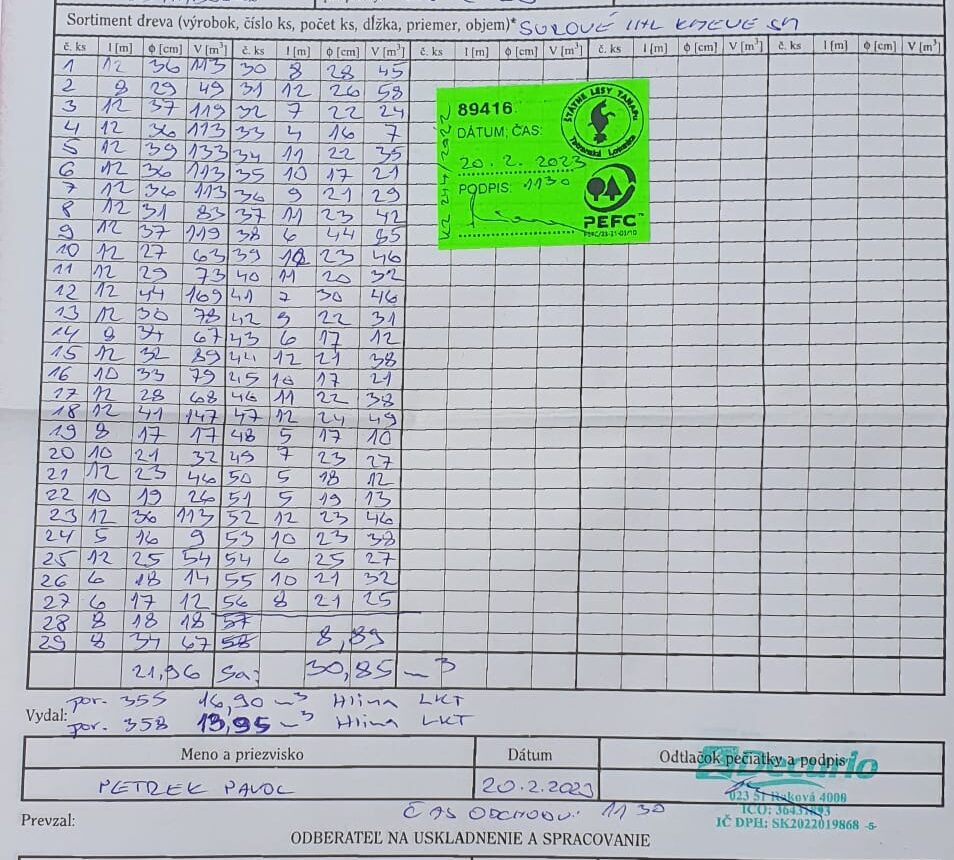 Sortiment dreva (výrobok, číslo ks, počet ks, dĺžka, priemer, objem)* SUROVÉ IHL KMENE SM
č. ks l [m] ϕ [cm] V [m³] č. ks l [m] ϕ [cm] V [m³] č. ks l [m] ϕ [cm] V [m³] č. ks l [m] ϕ [cm] V [m³] č. ks l [m] ϕ [cm] V [m³]
1 12 36 113 30 8 28 45
2 9 29 49 31 12 26 58
3 12 37 119 32 7 22 24
4 12 36 113 33 4 16 7
5 12 39 133 34 11 22 35
6 12 36 113 35 10 17 21
7 12 36 113 36 9 21 29
8 12 31 83 37 11 23 42
9 12 37 119 38 6 44 85
10 12 27 63 39 12 23 46
11 12 29 73 40 11 20 32
12 12 44 169 41 7 30 46
13 12 30 78 42 9 22 31
14 8 34 67 43 6 17 12
15 12 32 89 44 12 21 38
16 10 33 79 45 10 17 21
17 12 28 68 46 11 22 38
18 12 41 147 47 12 24 49
19 8 17 17 48 5 17 10
20 10 21 32 49 7 23 27
21 12 23 46 50 5 18 12
22 10 19 26 51 5 19 13
23 12 36 113 52 12 23 46
24 5 16 9 53 10 23 38
25 12 25 54 54 6 25 27
26 6 18 14 55 10 21 32
27 6 17 12 56 8 21 25
28 8 18 18 57
29 8 34 67 58 8,89
21,96 Sa: 30,85 m³
89416
DÁTUM, ČAS:
20. 2. 2023
PODPIS: 1130
ŠTÁTNE LESY TANAPu
Tatranská Lomnica
PEFC™
Vydal: por. 355 16,90 m³ Hlina LKT
por. 358 13,95 m³ Hlina LKT
Meno a priezvisko Dátum Odtlačok pečiatky a podpis
PETREK PAVOL 20.2.2023
Decurio
023 51 Raková 4008
IČO: 36431893
IČ DPH: SK2022019868 -5-
Prevzal: ČAS ODCHODU: 11 30
ODBERATEĽ NA USKLADNENIE A SPRACOVANIE